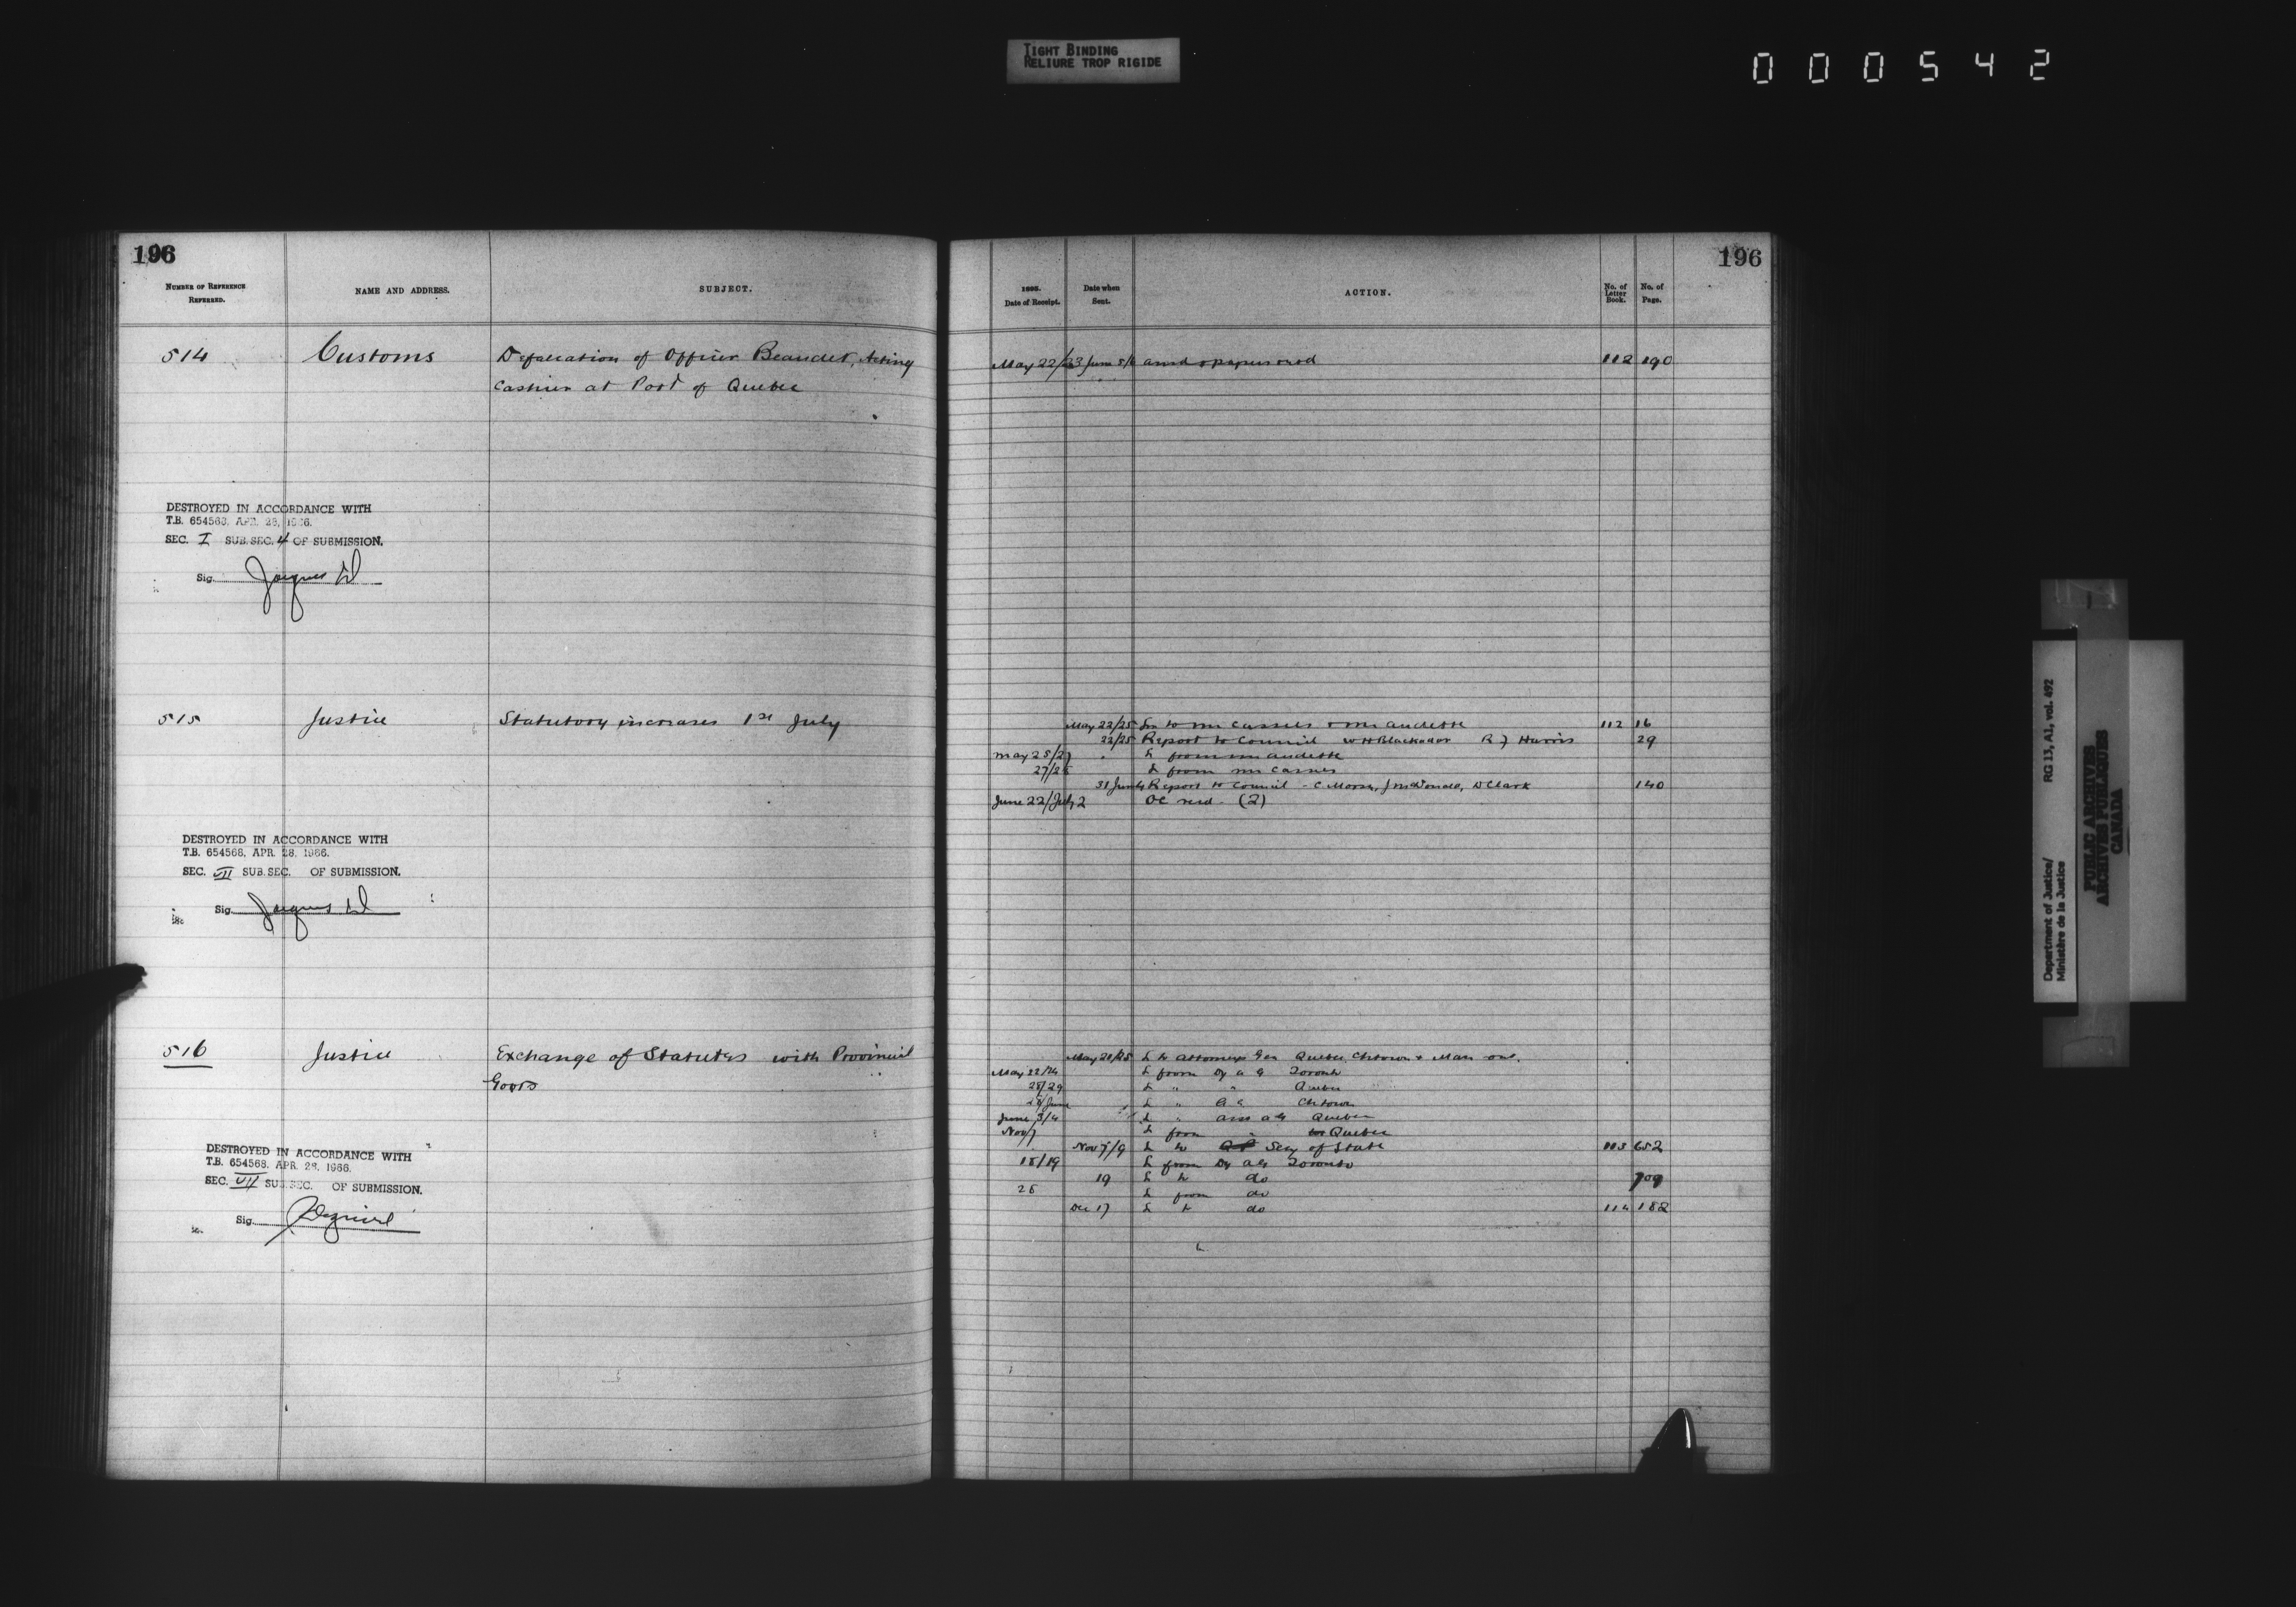 TIGHT BINDING
RELIURE TROP RIGIDE
000542
196
NUMBER OF REFERENCE REFERRED.
NAME AND ADDRESS.
SUBJECT.
514 Customs Defalcation of Officer Beaudet, Acting
Cashier at Port of Quebec
DESTROYED IN ACCORDANCE WITH
T.B. 654568, APR. 28, 1966.
SEC. I SUB.SEC. 4 OF SUBMISSION.
Sig.
515 Justice Statutory increases 1st July
DESTROYED IN ACCORDANCE WITH
T.B. 654568, APR. 28, 1966.
SEC. VII SUB.SEC. OF SUBMISSION.
Sig.
516 Justice Exchange of Statutes with Provincial
Govts
DESTROYED IN ACCORDANCE WITH
T.B. 654568, APR. 28, 1966.
SEC. VII SUB.SEC. OF SUBMISSION.
Sig.
196
Date of Receipt.
Date when Sent.
ACTION.
No. of Letter Book.
No. of Page.
May 22/23 June 5/6 112 190
May 22/25 to Mr Cassels & Mr Audette 112 16
22/25 Report to Council W H Blackadar R J Harris 29
May 25/27 L from Mr Audette
27/28 L from Mr Cassels
31 June 4 Report to Council - C Morse, J McDonald, D Clark 140
June 22/July 2 OC recd. (2)
May 21/25 L to Attorneys Gen Quebec, Chtown &
May 22/24 L from Dy A G Toronto
28/29 L " " Quebec
28/June L " A G Chtown
June 3/4 L " Ass AG Quebec
Nov 7 L from " Quebec
Nov 7/9 L to Secy of State 113 652
18/19 L from Dy AG Toronto
19 L to do 709
25 L from do
Dec 17 L to do 114 182
Department of Justice/
Ministère de la Justice
RG 13, A1, vol. 492
PUBLIC ARCHIVES
ARCHIVES PUBLIQUES
CANADA